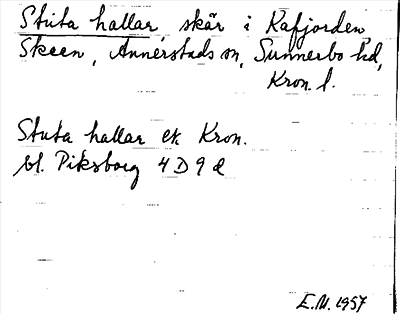 Stuta hallar, skär i Kafjorden,
Skeen, Annerstads sn, Sunnerbo hd,
Kron. l.
Stuta hallar ek Kron.
bl. Piksborg 4 D 9 d
E.M. 1957